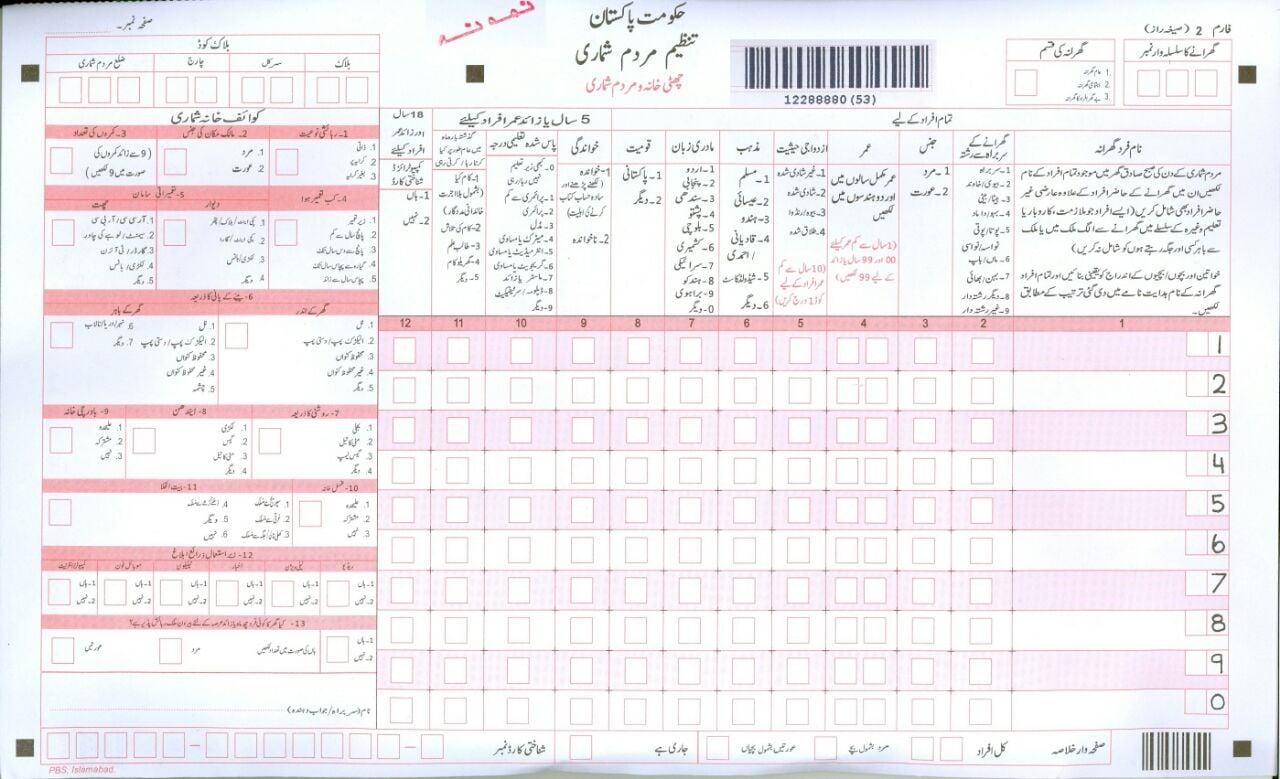 نمونہ
حکومت پاکستان
تنظیم مردم شماری
چھٹی خانہ و مردم شماری
12288880 (53)
فارم 2 (صیغہ راز)
گھرانے کا سلسلہ وار نمبر
گھرانہ کی قسم
صفحہ نمبر۔
بلاک کوڈ
بلاک
سرکل
چارج
ضلع مردم شماری
تمام افراد کے لیے
5 سال یا زائد عمر افراد کیلئے
18 سال اور زائد عمر افراد کیلئے
نام فرد گھرانہ
مردم شماری کے دن کی صبح صادق گھر میں موجود تمام افراد کے نام
لکھیں ان میں گھرانے کے حاضر افراد کے علاوہ عارضی غیر
حاضر افراد بھی شامل کریں (ایسے افراد جو ملازمت، کاروبار یا
تعلیم وغیرہ کے سلسلے میں گھرانے سے الگ ملک میں یا ملک
سے باہر کسی اور جگہ رہتے ہوں کو شامل نہ کریں)
خواتین اور بچوں/بچیوں کے اندراج کو یقینی بنائیں اور تمام افراد
گھرانہ کے نام ہدایت نامے میں دی گئی ترتیب کے مطابق
لکھیں۔
گھرانے کے سربراہ سے رشتہ
1۔ سربراہ
2۔ بیوی/خاوند
3۔ بیٹا/بیٹی
4۔ بہو/داماد
5۔ پوتا/پوتی
نواسہ/نواسی
6۔ ماں/باپ
7۔ بہن/بھائی
8۔ دیگر رشتہ دار
9۔ غیر رشتہ دار
جنس
1۔ مرد
2۔ عورت
عمر
عمر مکمل سالوں میں
اور دو ہندسوں میں
لکھیں
(1 سال سے کم عمر کیلئے
00 اور 99 سال یا زائد
کے لیے 99 لکھیں)
ازدواجی حیثیت
1۔ غیر شادی شدہ
2۔ شادی شدہ
3۔ بیوہ/رنڈوا
4۔ طلاق شدہ
(10 سال سے کم
عمر افراد کے لیے
کوڈ 1 درج کریں)
مذہب
1۔ مسلم
2۔ عیسائی
3۔ ہندو
4۔ قادیانی
/احمدی
5۔ شیڈولڈ کاسٹ
6۔ دیگر
مادری زبان
1۔ اردو
2۔ پنجابی
3۔ سندھی
4۔ پشتو
5۔ بلوچی
6۔ کشمیری
7۔ سرائیکی
8۔ ہندکو
9۔ براہوی
0۔ دیگر
قومیت
1۔ پاکستانی
2۔ دیگر
خواندگی
1۔ خواندہ
(لکھنے پڑھنے اور
سادہ حساب کتاب
کرنے کی اہلیت)
2۔ ناخواندہ
پاس شدہ تعلیمی درجہ
1۔ پرائمری سے کم
2۔ پرائمری
3۔ مڈل
4۔ میٹرک یا مساوی
5۔ انٹرمیڈیٹ یا مساوی
6۔ گریجویٹ یا مساوی
7۔ ماسٹر یا زائد
8۔ ڈپلومہ/سرٹیفکیٹ
9۔ دیگر
1۔ کام کیا
4۔ طالب علم
5۔ گھریلو کام
6۔ دیگر
کمپیوٹرائزڈ شناختی کارڈ
1۔ ہاں
2۔ نہیں
12 11 10 9 8 7 6 5 4 3 2 1
1
2
3
4
5
6
7
8
9
0
کوائف خانہ شماری
1- رہائشی نوعیت
2- مالک مکان کی جنس
1. مرد
2. عورت
3- کمروں کی تعداد
(9 سے زائد کمروں کی
صورت میں 9 لکھیں)
4- کب تعمیر ہوا
1. زیر تعمیر
2. پانچ سال سے کم
5- تعمیراتی سامان
دیوار
چھت
6- پینے کے پانی کا ذریعہ
گھر کے اندر
گھر کے باہر
1. نل
2. الیکٹرک پمپ/دستی پمپ
3. محفوظ کنواں
4. غیر محفوظ کنواں
5. دیگر
1. نل
2. الیکٹرک پمپ/دستی پمپ
3. محفوظ کنواں
4. غیر محفوظ کنواں
5. چشمہ
7. دیگر
7- روشنی کا ذریعہ
1. بجلی
2. مٹی کا تیل
3. گیس لیمپ
4. دیگر
8- ایندھن
1. لکڑی
2. گیس
3. مٹی کا تیل
4. دیگر
9- باورچی خانہ
1. علیحدہ
2. مشترکہ
3. نہیں
10- غسل خانہ
1. علیحدہ
2. مشترکہ
3. نہیں
11- بیت الخلا
5. دیگر
6. نہیں
12- زیر استعمال ذرائع ابلاغ
ریڈیو
ٹیلی ویژن
اخبار
ٹیلیفون
موبائل فون
کمپیوٹر/انٹرنیٹ
1۔ ہاں
2۔ نہیں
1۔ ہاں
2۔ نہیں
1۔ ہاں
2۔ نہیں
1۔ ہاں
2۔ نہیں
1۔ ہاں
2۔ نہیں
1۔ ہاں
2۔ نہیں
13- کیا گھر کا کوئی فرد چھ ماہ یا زائد عرصہ کے لئے بیرون ملک رہائش پذیر ہے؟
1۔ ہاں
2۔ نہیں
ہاں کی صورت میں تعداد لکھیں
مرد
عورتیں
نام (سربراہ/جواب دہندہ)
صفحہ وار خلاصہ
کل افراد
مرد بشمول بچے
عورتیں بشمول بچیاں
جاری ہے
شناختی کارڈ نمبر
PBS, Islamabad.